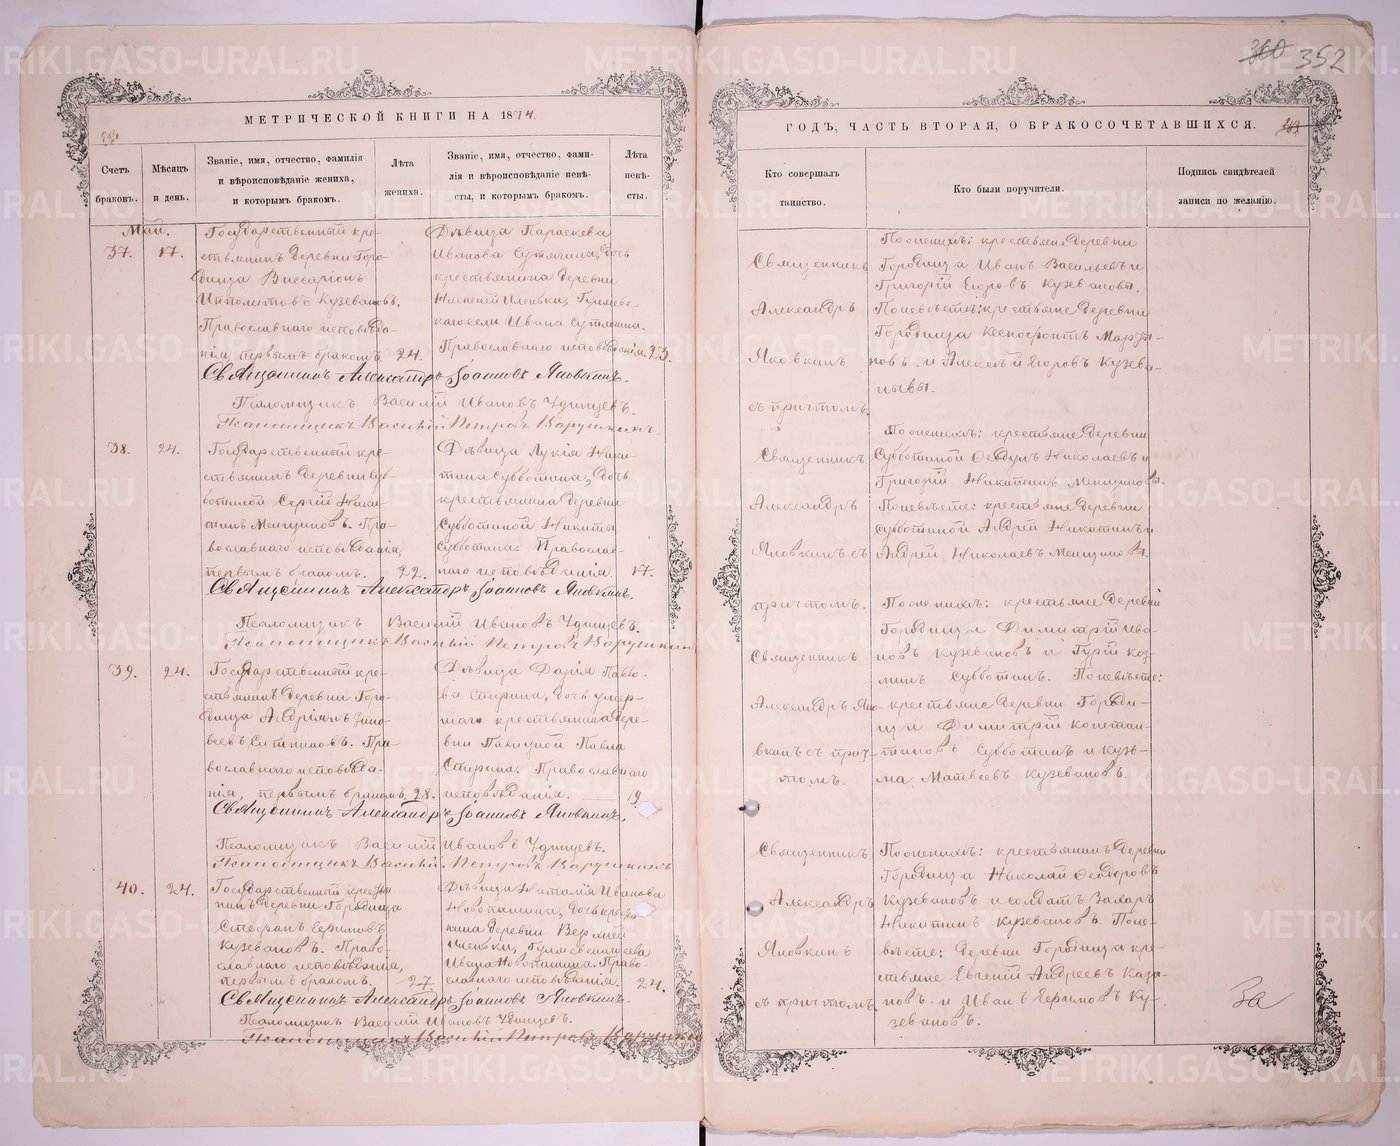 МЕТРИЧЕСКОЙ КНИГИ НА 1874.
Счетъ браковъ.
Мѣсяцъ и день.
Званіе, имя, отчество, фамилія
и вѣроисповѣданіе жениха,
и которымъ бракомъ.
Лѣта жениха.
Званіе, имя, отчество, фами-
лія и вѣроисповѣданіе невѣ-
сты, и которымъ бракомъ.
Лѣта невѣ-
сты.
Май.
37. 17.
Государственный кре-
стьянинъ деревни Горо-
дища Виссаріонъ
Ипполитовъ Кузевановъ,
Православнаго исповѣда-
нія, первымъ бракомъ. 24.
Дѣвица Параскева
Иванова Сутягина, дочь
крестьянина деревни
Нижней Иленьки,
Ивана Сутягина.
Православнаго исповѣданія. 23.
Священникъ Александръ Іоанновъ Яновкинъ.
Псаломщикъ Василій Ивановъ Удинцевъ.
Псаломщикъ Василій Петровъ Варушкинъ.
38. 24.
Государственный кре-
стьянинъ деревни Суб-
ботиной Сергій Ники-
тинъ Меншиковъ. Пра-
вославнаго исповѣданія,
первымъ бракомъ. 22.
Дѣвица Лукія Ники-
тина Субботина, дочь
крестьянина деревни
Субботиной Никиты
Субботина. Православ-
наго исповѣданія. 17.
Священникъ Александръ Іоанновъ Яновкинъ.
Псаломщикъ Василій Ивановъ Удинцевъ.
Псаломщикъ Василій Петровъ Варушкинъ
39. 24.
Государственный кре-
стьянинъ деревни Горо-
дища Адріянъ Зино-
вьевъ Ситниковъ. Пра-
вославнаго исповѣда-
нія, первымъ бракомъ. 28.
Дѣвица Дарія Павло-
ва Спирина, дочь умер-
шаго крестьянина дере-
вни Павла
Спирина. Православнаго
исповѣданія. 19
Священникъ Александръ Іоанновъ Яновкинъ.
Псаломщикъ Василій Ивановъ Удинцевъ.
Псаломщикъ Василій Петровъ Варушкинъ
40. 24.
Государственный крестья-
нинъ деревни Городища
Стефанъ Ефимовъ
Кузевановъ. Право-
славнаго исповѣданія,
первымъ бракомъ. 27.
Дѣвица Наталія Иванова
Новопашина, дочь крестья-
нина деревни Верхней
Иленьки,
Ивана Новопашина. Право-
славнаго исповѣданія. 24.
Священникъ Александръ Іоанновъ Яновкинъ.
Псаломщикъ Василій Ивановъ Удинцевъ.
Псаломщикъ Василій Петровъ Варушкинъ
360 352
ГОДЪ, ЧАСТЬ ВТОРАЯ, О БРАКОСОЧЕТАВШИХСЯ.
Кто совершалъ
таинство.
Кто были поручители.
Подпись свидѣтелей
записи по желанію.
Священникъ
Александръ
Яновкинъ
съ причтомъ.
По женихѣ: крестьяне деревни
Городища Иванъ Васильевъ и
Григорій Егоровъ Кузевановы.
По невѣстѣ: крестьяне деревни
Городища Ксенофонтъ
и Алексѣй Егоровъ Кузева-
новы.
Священникъ
Александръ
Яновкинъ съ
причтомъ.
По женихѣ: крестьяне деревни
Субботиной Николаевъ и
Григорій Никитинъ Меншиковы.
По невѣстѣ: крестьяне деревни
Субботиной Андрей Никитинъ и
Андрей Николаевъ Меншиковы.
Священникъ
Александръ Яно-
вкинъ съ прич-
томъ.
По женихѣ: крестьяне деревни
Городища Димитрій Ива-
новъ Кузевановъ и Гурій Коз-
минъ Субботинъ. По невѣстѣ:
крестьяне деревни Городи-
ща Димитрій Констан-
тиновъ Субботинъ и Кузь-
ма Матвеевъ Кузевановъ.
Священникъ
Александръ
Яновкинъ
съ причтомъ.
По женихѣ: крестьянинъ деревни
Городища Николай Ѳеодоровъ
Кузевановъ и солдатъ Захаръ
Никитинъ Кузевановъ. По не-
вѣстѣ: деревни Городища кре-
стьяне Евгеній Андреевъ Каза-
новъ и Иванъ Ефимовъ Ку-
зевановъ.
За